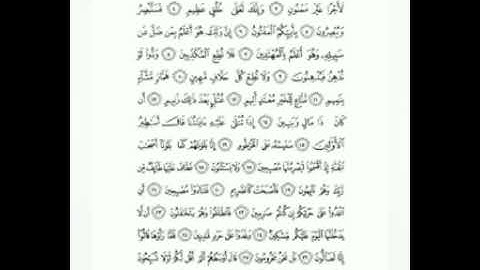 لَأَجْرًا غَيْرَ مَمْنُونٍ ٣ وَإِنَّكَ لَعَلَىٰ خُلُقٍ عَظِيمٍ ٤ فَسَتُبْصِرُ
وَيُبْصِرُونَ ٥ بِأَييِّكُمُ ٱلْمَفْتُونُ ٦ إِنَّ رَبَّكَ هُوَ أَعْلَمُ بِمَن ضَلَّ عَن
سَبِيلِهِۦ وَهُوَ أَعْلَمُ بِٱلْمُهْتَدِينَ ٧ فَلَا تُطِعِ ٱلْمُكَذِّبِينَ ٨ وَدُّوا۟ لَوْ
تُدْهِنُ فَيُدْهِنُونَ ٩ وَلَا تُطِعْ كُلَّ حَلَّافٍ مَّهِينٍ ١٠ هَمَّازٍ مَّشَّآءٍۭ
بِنَمِيمٍ ١١ مَّنَّاعٍ لِّلْخَيْرِ مُعْتَدٍ أَثِيمٍ ١٢ عُتُلٍّۭ بَعْدَ ذَٰلِكَ زَنِيمٍ ١٣ أَن
كَانَ ذَا مَالٍ وَبَنِينَ ١٤ إِذَا تُتْلَىٰ عَلَيْهِ ءَايَٰتُنَا قَالَ أَسَٰطِيرُ
ٱلْأَوَّلِينَ ١٥ سَنَسِمُهُۥ عَلَى ٱلْخُرْطُومِ ١٦ إِنَّا بَلَوْنَٰهُمْ كَمَا بَلَوْنَآ أَصْحَٰبَ
ٱلْجَنَّةِ إِذْ أَقْسَمُوا۟ لَيَصْرِمُنَّهَا مُصْبِحِينَ ١٧ وَلَا يَسْتَثْنُونَ ١٨ فَطَافَ عَلَيْهَا طَآئِفٌ مِّن
رَّبِّكَ وَهُمْ نَآئِمُونَ ١٩ فَأَصْبَحَتْ كَٱلصَّرِيمِ ٢٠ فَتَنَادَوْا۟ مُصْبِحِينَ ٢١ أَنِ
ٱغْدُوا۟ عَلَىٰ حَرْثِكُمْ إِن كُنتُمْ صَٰرِمِينَ ٢٢ فَٱنطَلَقُوا۟ وَهُمْ يَتَخَٰفَتُونَ ٢٣ أَن لَّا
يَدْخُلَنَّهَا ٱلْيَوْمَ عَلَيْكُم مِّسْكِينٌ ٢٤ وَغَدَوْا۟ عَلَىٰ حَرْدٍ قَٰدِرِينَ ٢٥ فَلَمَّا رَأَوْهَا قَالُوٓا۟
إِنَّا لَضَآلُّونَ ٢٦ بَلْ نَحْنُ مَحْرُومُونَ ٢٧ قَالَ أَوْسَطُهُمْ أَلَمْ أَقُل لَّكُمْ لَوْلَا تُسَبِّحُونَ